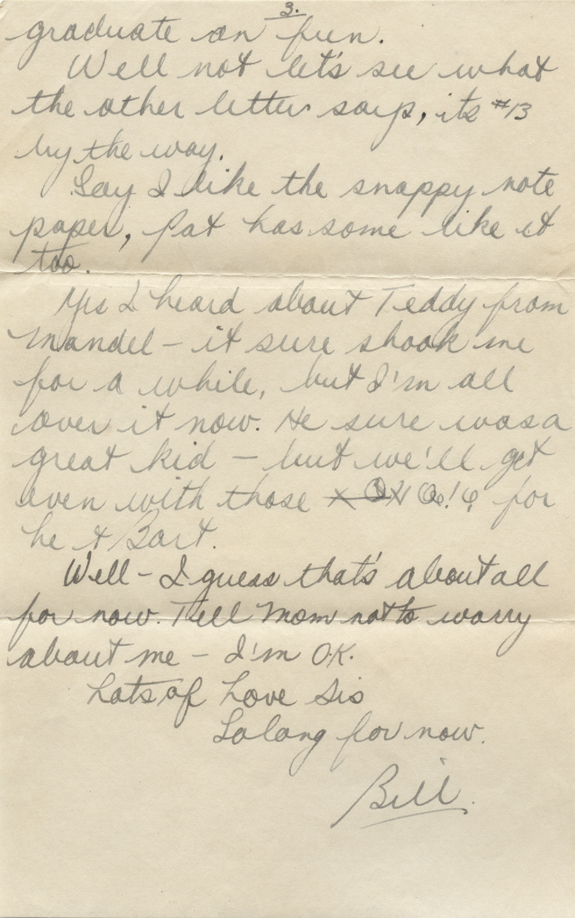 3.
graduate an fun.
Well not let's see what
the other letter says, its #13
by the way.
Say I like the snappy note
paper, Pat has some like it
too.
Yes I heard about Teddy from
Mandel - it sure shook me
for a while, but I'm all
over it now. He sure was a
great kid - but we'll get
even with those for
he & Bart.
Well - I guess that's about all
for now. Tell Mom not to worry
about me - I'm OK.
Lots of Love Sis
So long for now.
Bill